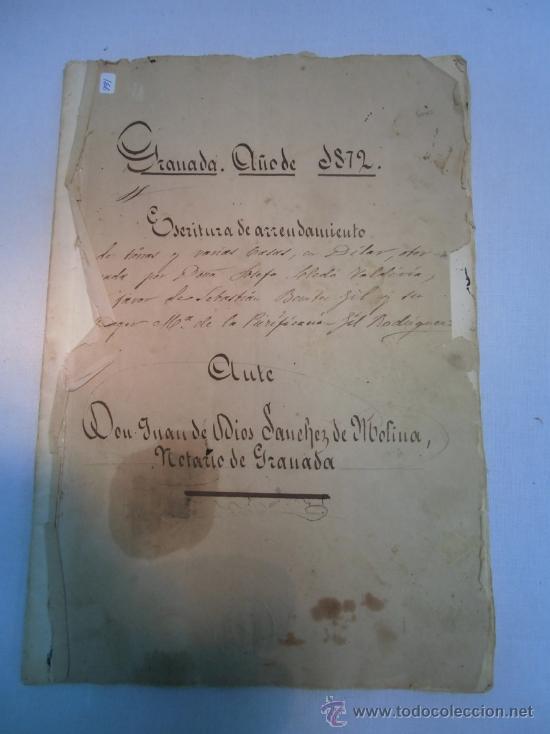 1661
Granada. Año de 1872.
Escritura de arrendamiento
de tierras y varias Casas, en Dilar, otor
gada por Dona Josefa Toledo Valdivia,
favor de Sebastián Benitez Gil y su
muger Mª de la Purificacion Gil Rodriguez
Ante
Don Juan de Dios Sanchez de Molina,
Notario de Granada
todocoleccion
www.todocoleccion.net